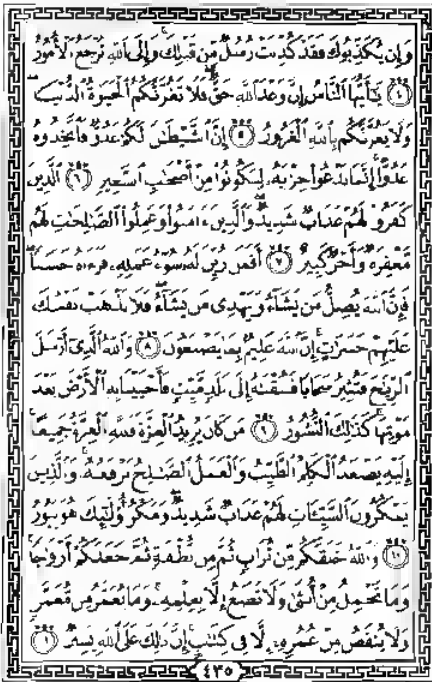 وَإِن يُكَذِّبُوكَ فَقَدْ كُذِّبَتْ رُسُلٌ مِّن قَبْلِكَ وَإِلَى ٱللَّهِ تُرْجَعُ ٱلْأُمُورُ
٤ يَٰٓأَيُّهَا ٱلنَّاسُ إِنَّ وَعْدَ ٱللَّهِ حَقٌّ فَلَا تَغُرَّنَّكُمُ ٱلْحَيَوٰةُ ٱلدُّنْيَا
وَلَا يَغُرَّنَّكُم بِٱللَّهِ ٱلْغَرُورُ ٥ إِنَّ ٱلشَّيْطَٰنَ لَكُمْ عَدُوٌّ فَٱتَّخِذُوهُ
عَدُوًّا إِنَّمَا يَدْعُوا۟ حِزْبَهُۥ لِيَكُونُوا۟ مِنْ أَصْحَٰبِ ٱلسَّعِيرِ ٦ ٱلَّذِينَ
كَفَرُوا۟ لَهُمْ عَذَابٌ شَدِيدٌ وَٱلَّذِينَ ءَامَنُوا۟ وَعَمِلُوا۟ ٱلصَّٰلِحَٰتِ لَهُم
مَّغْفِرَةٌ وَأَجْرٌ كَبِيرٌ ٧ أَفَمَن زُيِّنَ لَهُۥ سُوٓءُ عَمَلِهِۦ فَرَءَاهُ حَسَنًا
فَإِنَّ ٱللَّهَ يُضِلُّ مَن يَشَآءُ وَيَهْدِى مَن يَشَآءُ فَلَا تَذْهَبْ نَفْسُكَ
عَلَيْهِمْ حَسَرَٰتٍ إِنَّ ٱللَّهَ عَلِيمٌۢ بِمَا يَصْنَعُونَ ٨ وَٱللَّهُ ٱلَّذِىٓ أَرْسَلَ
ٱلرِّيَٰحَ فَتُثِيرُ سَحَابًا فَسُقْنَٰهُ إِلَىٰ بَلَدٍ مَّيِّتٍ فَأَحْيَيْنَا بِهِ ٱلْأَرْضَ بَعْدَ
مَوْتِهَا كَذَٰلِكَ ٱلنُّشُورُ ٩ مَن كَانَ يُرِيدُ ٱلْعِزَّةَ فَلِلَّهِ ٱلْعِزَّةُ جَمِيعًا
إِلَيْهِ يَصْعَدُ ٱلْكَلِمُ ٱلطَّيِّبُ وَٱلْعَمَلُ ٱلصَّٰلِحُ يَرْفَعُهُۥ وَٱلَّذِينَ
يَمْكُرُونَ ٱلسَّيِّـَٔاتِ لَهُمْ عَذَابٌ شَدِيدٌ وَمَكْرُ أُو۟لَٰٓئِكَ هُوَ يَبُورُ
١٠ وَٱللَّهُ خَلَقَكُم مِّن تُرَابٍ ثُمَّ مِن نُّطْفَةٍ ثُمَّ جَعَلَكُمْ أَزْوَٰجًا
وَمَا تَحْمِلُ مِنْ أُنثَىٰ وَلَا تَضَعُ إِلَّا بِعِلْمِهِۦ وَمَا يُعَمَّرُ مِن مُّعَمَّرٍ
وَلَا يُنقَصُ مِنْ عُمُرِهِۦٓ إِلَّا فِى كِتَٰبٍ إِنَّ ذَٰلِكَ عَلَى ٱللَّهِ يَسِيرٌ ١١
٤٣٥